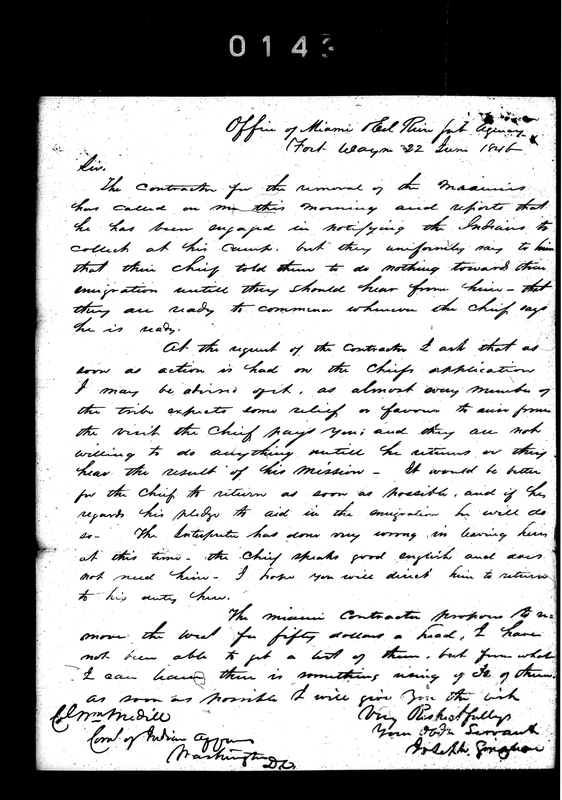 014
Office of Miami & Eel River sub Agency
Fort Wayne 22 June 1846
Sir.
The Contractor for the removal of the Miamis
has called on me this morning and reports that
he has been engaged in notifying the Indians to
collect at his Camp. but they uniformily say to him
that their Chief told them to do nothing toward their
emigration untill they should hear from him - that
they are ready to commence whenever the chief says
he is ready.
At the request of the Contractor I ask that as
soon as action is had on the Chiefs application
I may be advised of it, as almost every member of
the tribe expects some relief or favour to arise from
the visit the Chief pays you; and they are not
willing to do anything untill he returns or they
hear the result of his mission - It would be better
for the Chief to return as soon as possible, and if he
regards his pledge to aid in the emigration he will do
so - The Interpreter has done very wrong in leaving here
at this time - the Chief speaks good english and does
not need him - I hope you will direct him to return
to his duty here.
The miami Contractor proposes to re-
move the west for fifty dollars a head, I have
not been able to get a list of them, but from what
I can learn there is something of them
as soon as possible I will give you the list
Very Respectfully
Your Obdt Servant
Joseph Sinclear
Col Wm Medill
Com of Indian Affairs
Washington DC